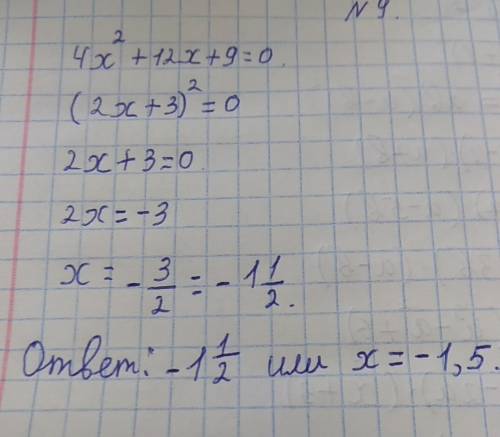 № 9.
4x² + 12x + 9 = 0.
(2x + 3)² = 0
2x + 3 = 0
2x = -3
x = - 3/2 = - 1 1/2.
Ответ: -1 1/2 или x = -1,5.